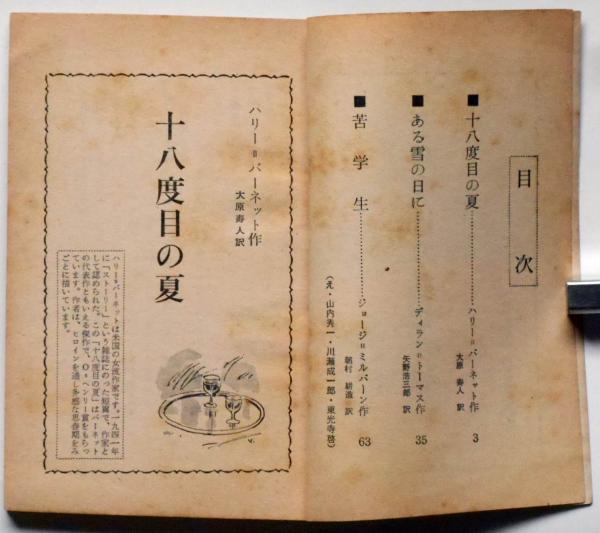 目次
■十八度目の夏……………ハリー＝バーネット作
大原寿人訳 3
■ある雪の日に……………ディラン＝トーマス作
矢野浩三郎訳 35
■苦学生……………ジョージ＝ミルバーン作
朝村耕造訳 63
(え・山内秀一・川瀬成一郎・東光寺啓)
ハリー＝バーネット作
大原寿人訳
十八度目の夏
ハリー＝バーネットは米国の女流作家です。一九四一年
に「ストーリー」という雑誌にのった短篇で、作家と
して認められた。この「十八度目の夏」はバーネット
の代表作ともいえる傑作で、O＝ヘンリー賞をもらっ
ています。作者は、ヒロインを通し多感な思春期をみ
ごとに描いています。